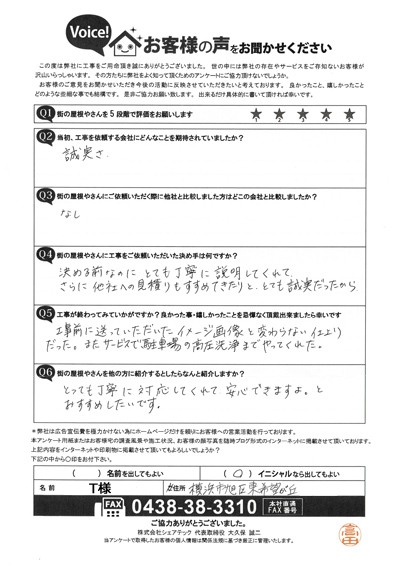 Voice!
お客様の声をお聞かせください
この度は弊社に工事をご用命頂き誠にありがとうございました。世の中には弊社の存在やサービスをご存知ないお客様が
沢山いらっしゃいます。その方たちに弊社をよく知って頂くためのアンケートにご協力頂けないでしょうか。
お客様のご意見をお聞かせいただき今後の活動に反映させていただきたいと考えております。良かったこと、嬉しかったこと
どのような些細な事でも結構です。是非ご協力お願い致します。出来るだけ具体的に書いて頂ければ幸いです。
Q1 街の屋根やさんを5段階で評価をお願いします ★ ★ ★ ★ ★
Q2 当初、工事を依頼する会社にどんなことを期待されていましたか?
誠実さ
Q3 街の屋根やさんにご依頼いただく際に他社と比較しました方はどこの会社と比較しましたか?
なし
Q4 街の屋根やさんに工事をご依頼いただいた決め手は何ですか?
決める前なのに とても丁寧に説明してくれて、
さらに他社への見積りもすすめてきたりと、とても誠実だったから
Q5 工事が終わってみていかがですか?良かった事・嬉しかったことを忌憚なく頂戴出来ましたら幸いです
工事前に送っていただいたイメージ画像と変わらない仕上り
だった。またサービスで駐車場の高圧洗浄までやってくれた。
Q6 街の屋根やさんを他の方に紹介するとしたらなんと紹介しますか?
とっても丁寧に対応してくれて、安心できますよ。と
おすすめしたいです。
*弊社は広告宣伝費を極力かけない為にホームページだけを頼りにお客様への営業活動を行っております。
本アンケート用紙またはお客様宅の調査風景や施工状況、お客様の顔写真を随時ブログ形式のインターネットに掲載させて頂いております。
上記内容をインターネットや印刷物に掲載させて頂いてもよろしいでしょうか?
下記の中から〇印をお付け下さい。
( ) 名前を出してもよい (〇) イニシャルなら出してもよい
名前 T様 ご住所 横浜市旭区東希望が丘
FAX 0438-38-3310 本社直通 FAX番号
ご協力ありがとうございました。
株式会社シェアテック 代表取締役 大久保 誠二
当アンケートで取得したお客様の個人情報は関係法規に基づき厳正に管理いたします。